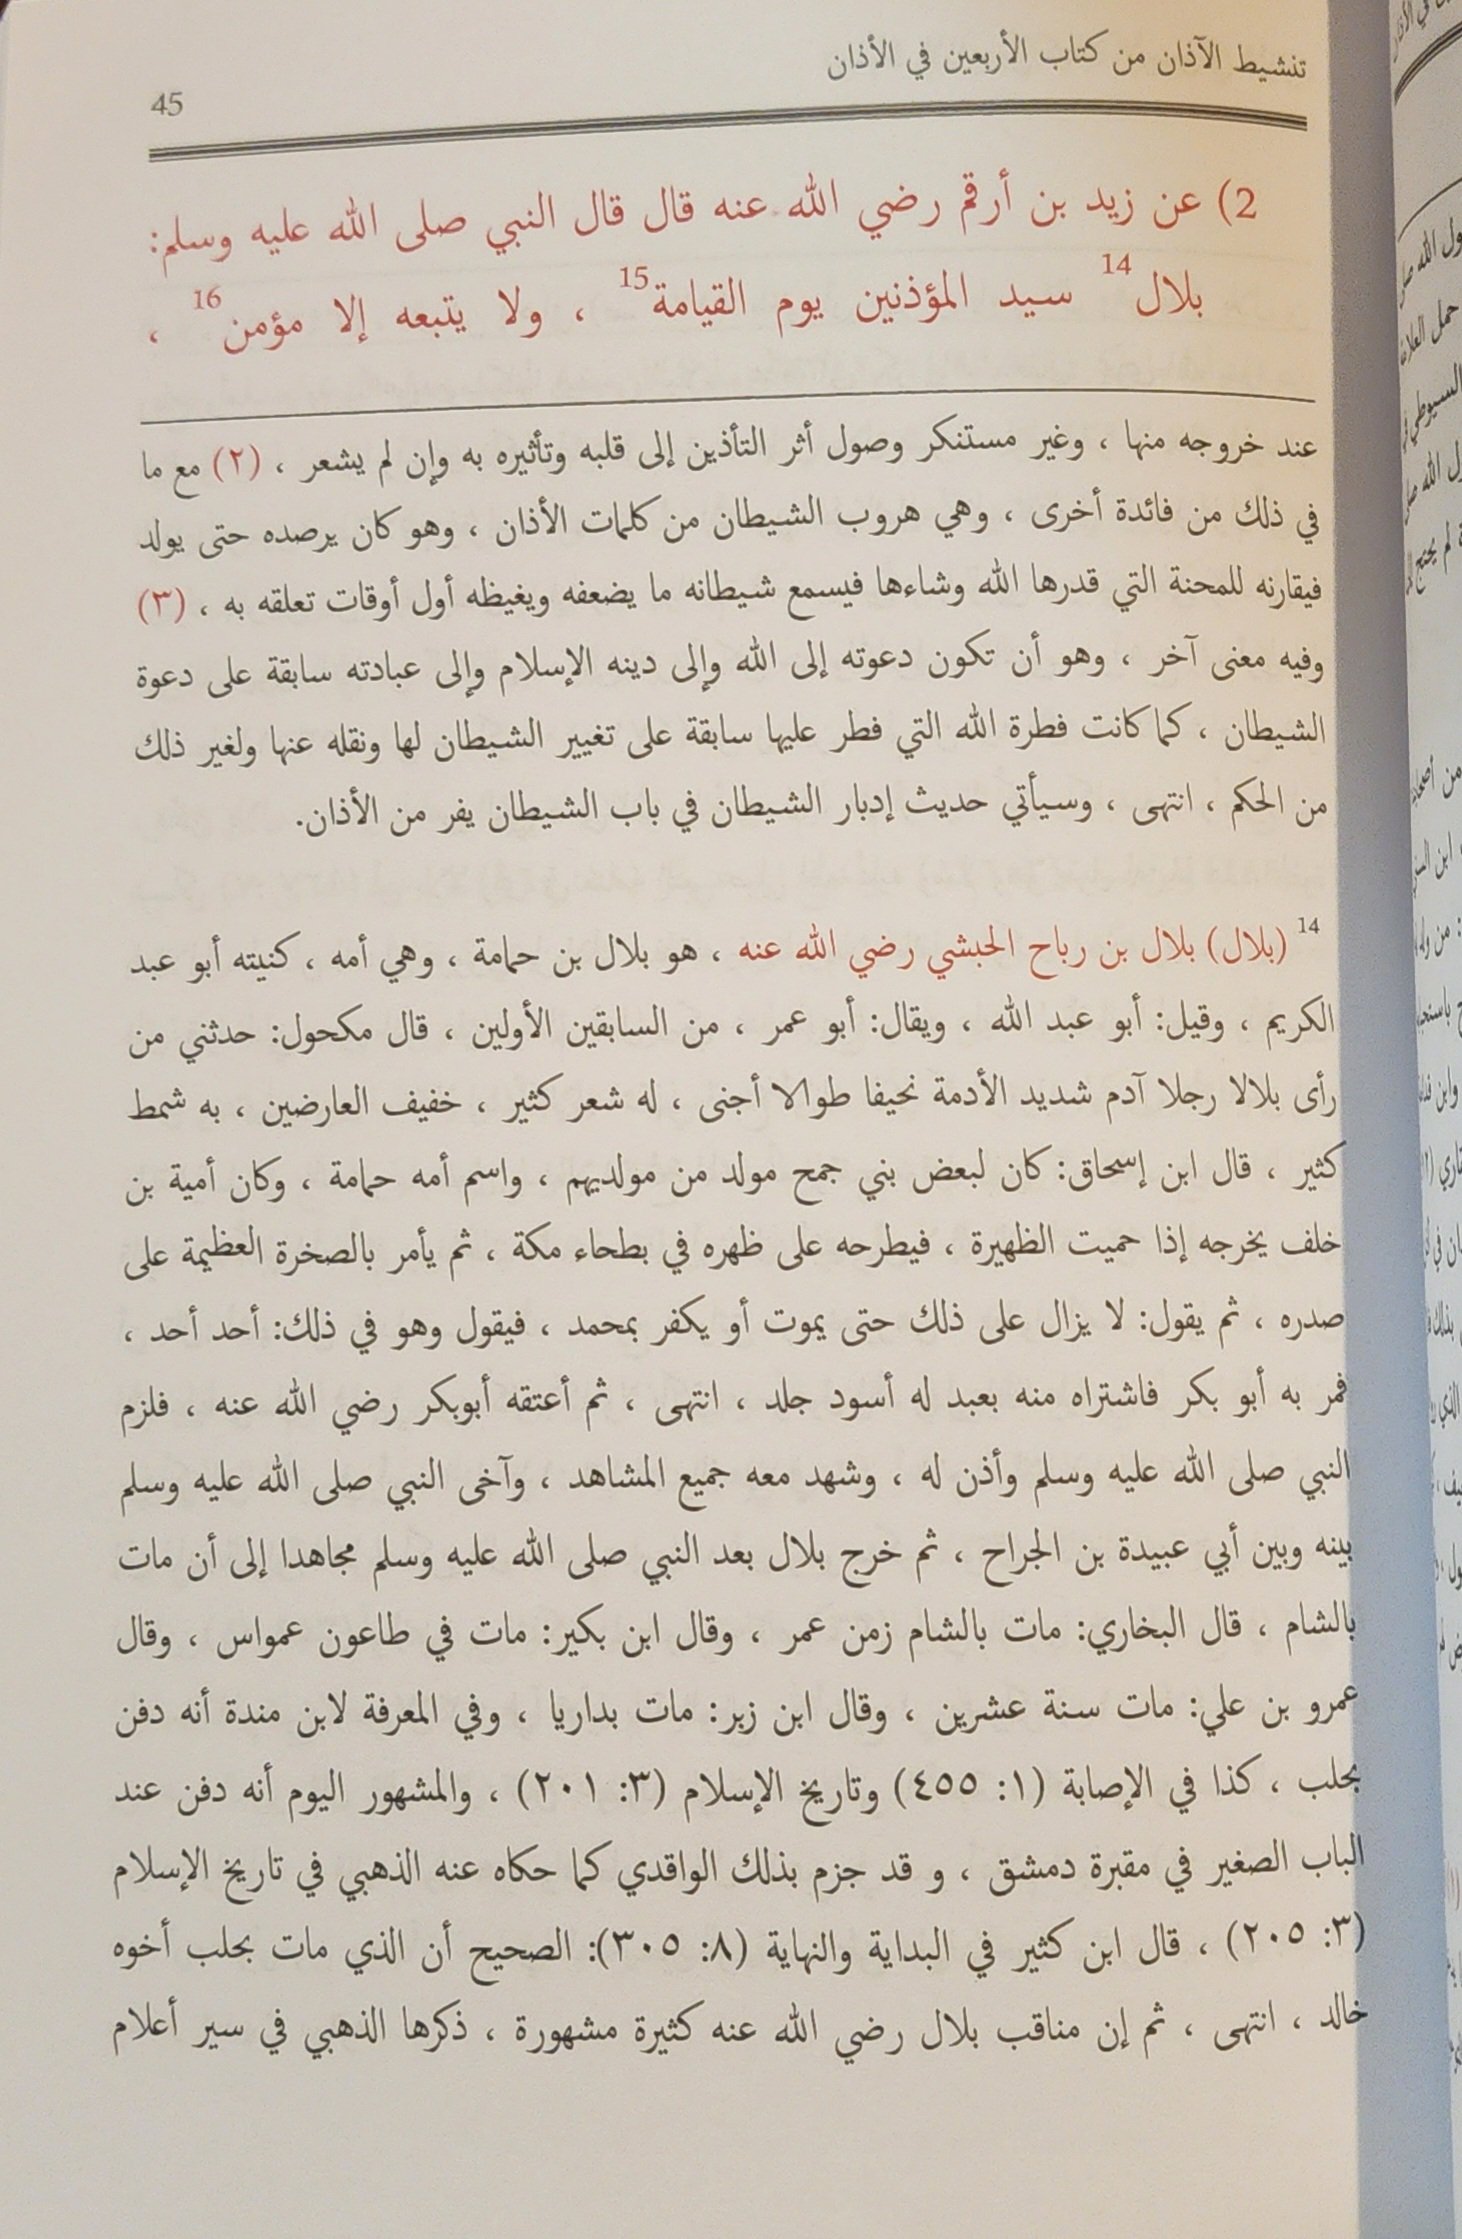 تنشيط الآذان من كتاب الأربعين في الأذان
45
2) عن زيد بن أرقم رضي الله عنه قال قال النبي صلى الله عليه وسلم:
بلال14 سيد المؤذنين يوم القيامة15 ، ولا يتبعه إلا مؤمن16 ،
عند خروجه منها ، وغير مستنكر وصول أثر التأذين إلى قلبه وتأثيره به وإن لم يشعر ، (٢) مع ما
في ذلك من فائدة أخرى ، وهي هروب الشيطان من كلمات الأذان ، وهو كان يرصده حتى يولد
فيقارنه للمحنة التي قدرها الله وشاءها فيسمع شيطانه ما يضعفه ويغيظه أول أوقات تعلقه به ، (٣)
وفيه معنى آخر ، وهو أن تكون دعوته إلى الله وإلى دينه الإسلام وإلى عبادته سابقة على دعوة
الشيطان ، كما كانت فطرة الله التي فطر عليها سابقة على تغيير الشيطان لها ونقله عنها ولغير ذلك
من الحكم ، انتهى ، وسيأتي حديث إدبار الشيطان في باب الشيطان يفر من الأذان.
14 (بلال) بلال بن رباح الحبشي رضي الله عنه ، هو بلال بن حمامة ، وهي أمه ، كنيته أبو عبد
الكريم ، وقيل: أبو عبد الله ، ويقال: أبو عمر ، من السابقين الأولين ، قال مكحول: حدثني من
رأى بلالا رجلا آدم شديد الأدمة نحيفا طوالا أجنى ، له شعر كثير ، خفيف العارضين ، به شمط
كثير ، قال ابن إسحاق: كان لبعض بني جمح مولد من مولديهم ، واسم أمه حمامة ، وكان أمية بن
خلف يخرجه إذا حميت الظهيرة ، فيطرحه على ظهره في بطحاء مكة ، ثم يأمر بالصخرة العظيمة على
صدره ، ثم يقول: لا يزال على ذلك حتى يموت أو يكفر بمحمد ، فيقول وهو في ذلك: أحد أحد ،
فمر به أبو بكر فاشتراه منه بعبد له أسود جلد ، انتهى ، ثم أعتقه أبوبكر رضي الله عنه ، فلزم
النبي صلى الله عليه وسلم وأذن له ، وشهد معه جميع المشاهد ، وآخى النبي صلى الله عليه وسلم
بينه وبين أبي عبيدة بن الجراح ، ثم خرج بلال بعد النبي صلى الله عليه وسلم مجاهدا إلى أن مات
بالشام ، قال البخاري: مات بالشام زمن عمر ، وقال ابن بكير: مات في طاعون عمواس ، وقال
عمرو بن علي: مات سنة عشرين ، وقال ابن زبر: مات بداريا ، وفي المعرفة لابن مندة أنه دفن
بحلب ، كذا في الإصابة (١: ٤٥٥) وتاريخ الإسلام (٣: ٢٠١) ، والمشهور اليوم أنه دفن عند
الباب الصغير في مقبرة دمشق ، و قد جزم بذلك الواقدي كما حكاه عنه الذهبي في تاريخ الإسلام
(٣: ٢٠٥) ، قال ابن كثير في البداية والنهاية (٨: ٣٠٥): الصحيح أن الذي مات بحلب أخوه
خالد ، انتهى ، ثم إن مناقب بلال رضي الله عنه كثيرة مشهورة ، ذكرها الذهبي في سير أعلام